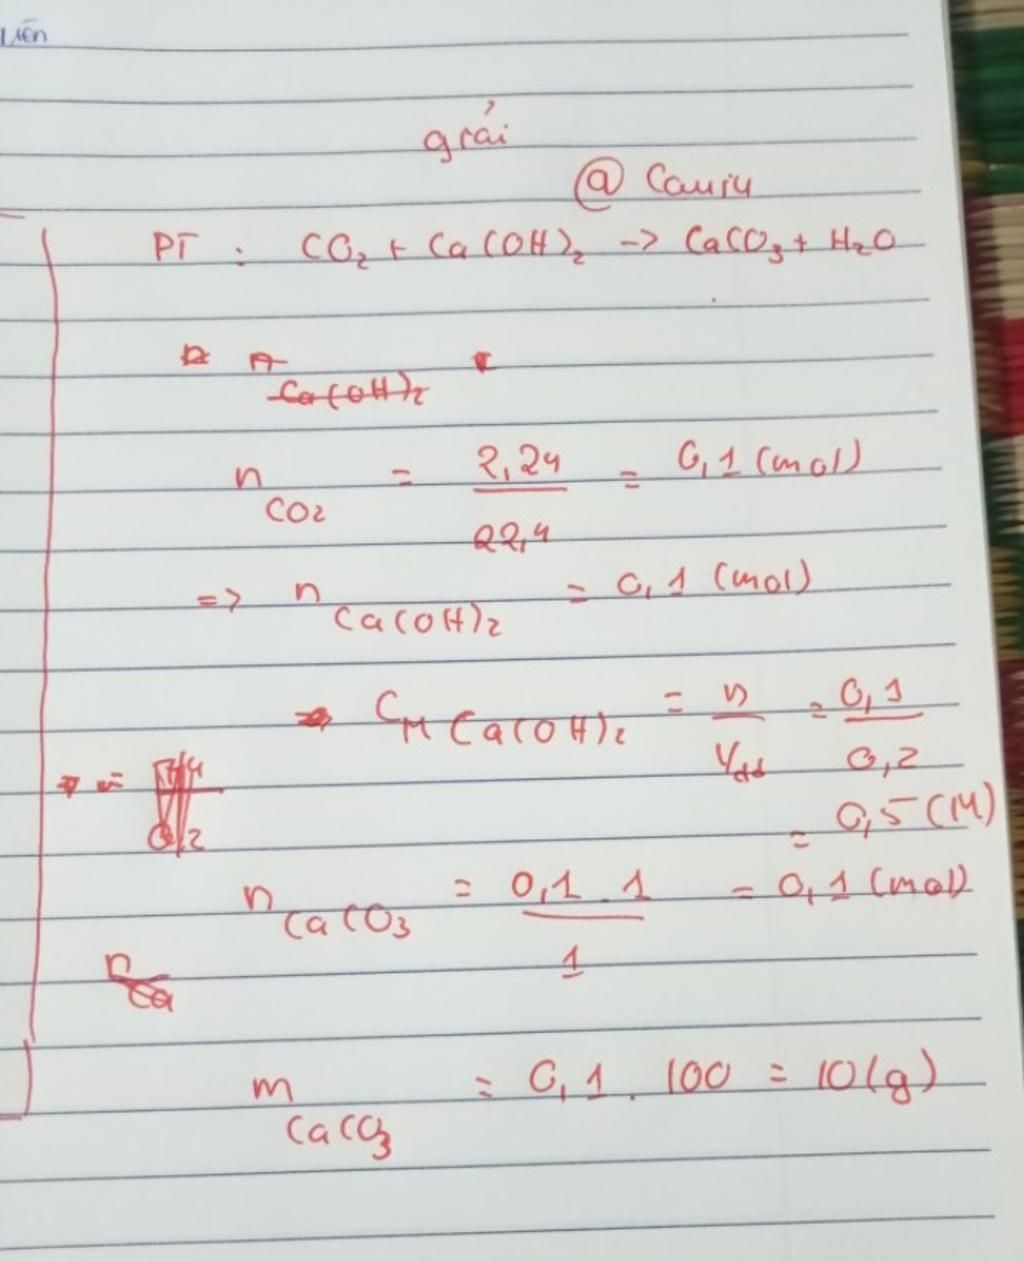 giải
@ Cauiy
PT : CO₂ + Ca(OH)₂ -> CaCO₃ + H₂O
Ca(OH)₂
n CO₂ = 2,24 / 22,4 = 0,1 (mol)
=> n Ca(OH)₂ = 0,1 (mol)
C_M Ca(OH)₂ = n / Vdd = 0,1 / 0,2
= 0,5 (M)
n CaCO₃ = 0,1 . 1 / 1 = 0,1 (mol)
n Ca
m CaCO₃ = 0,1 . 100 = 10(g)